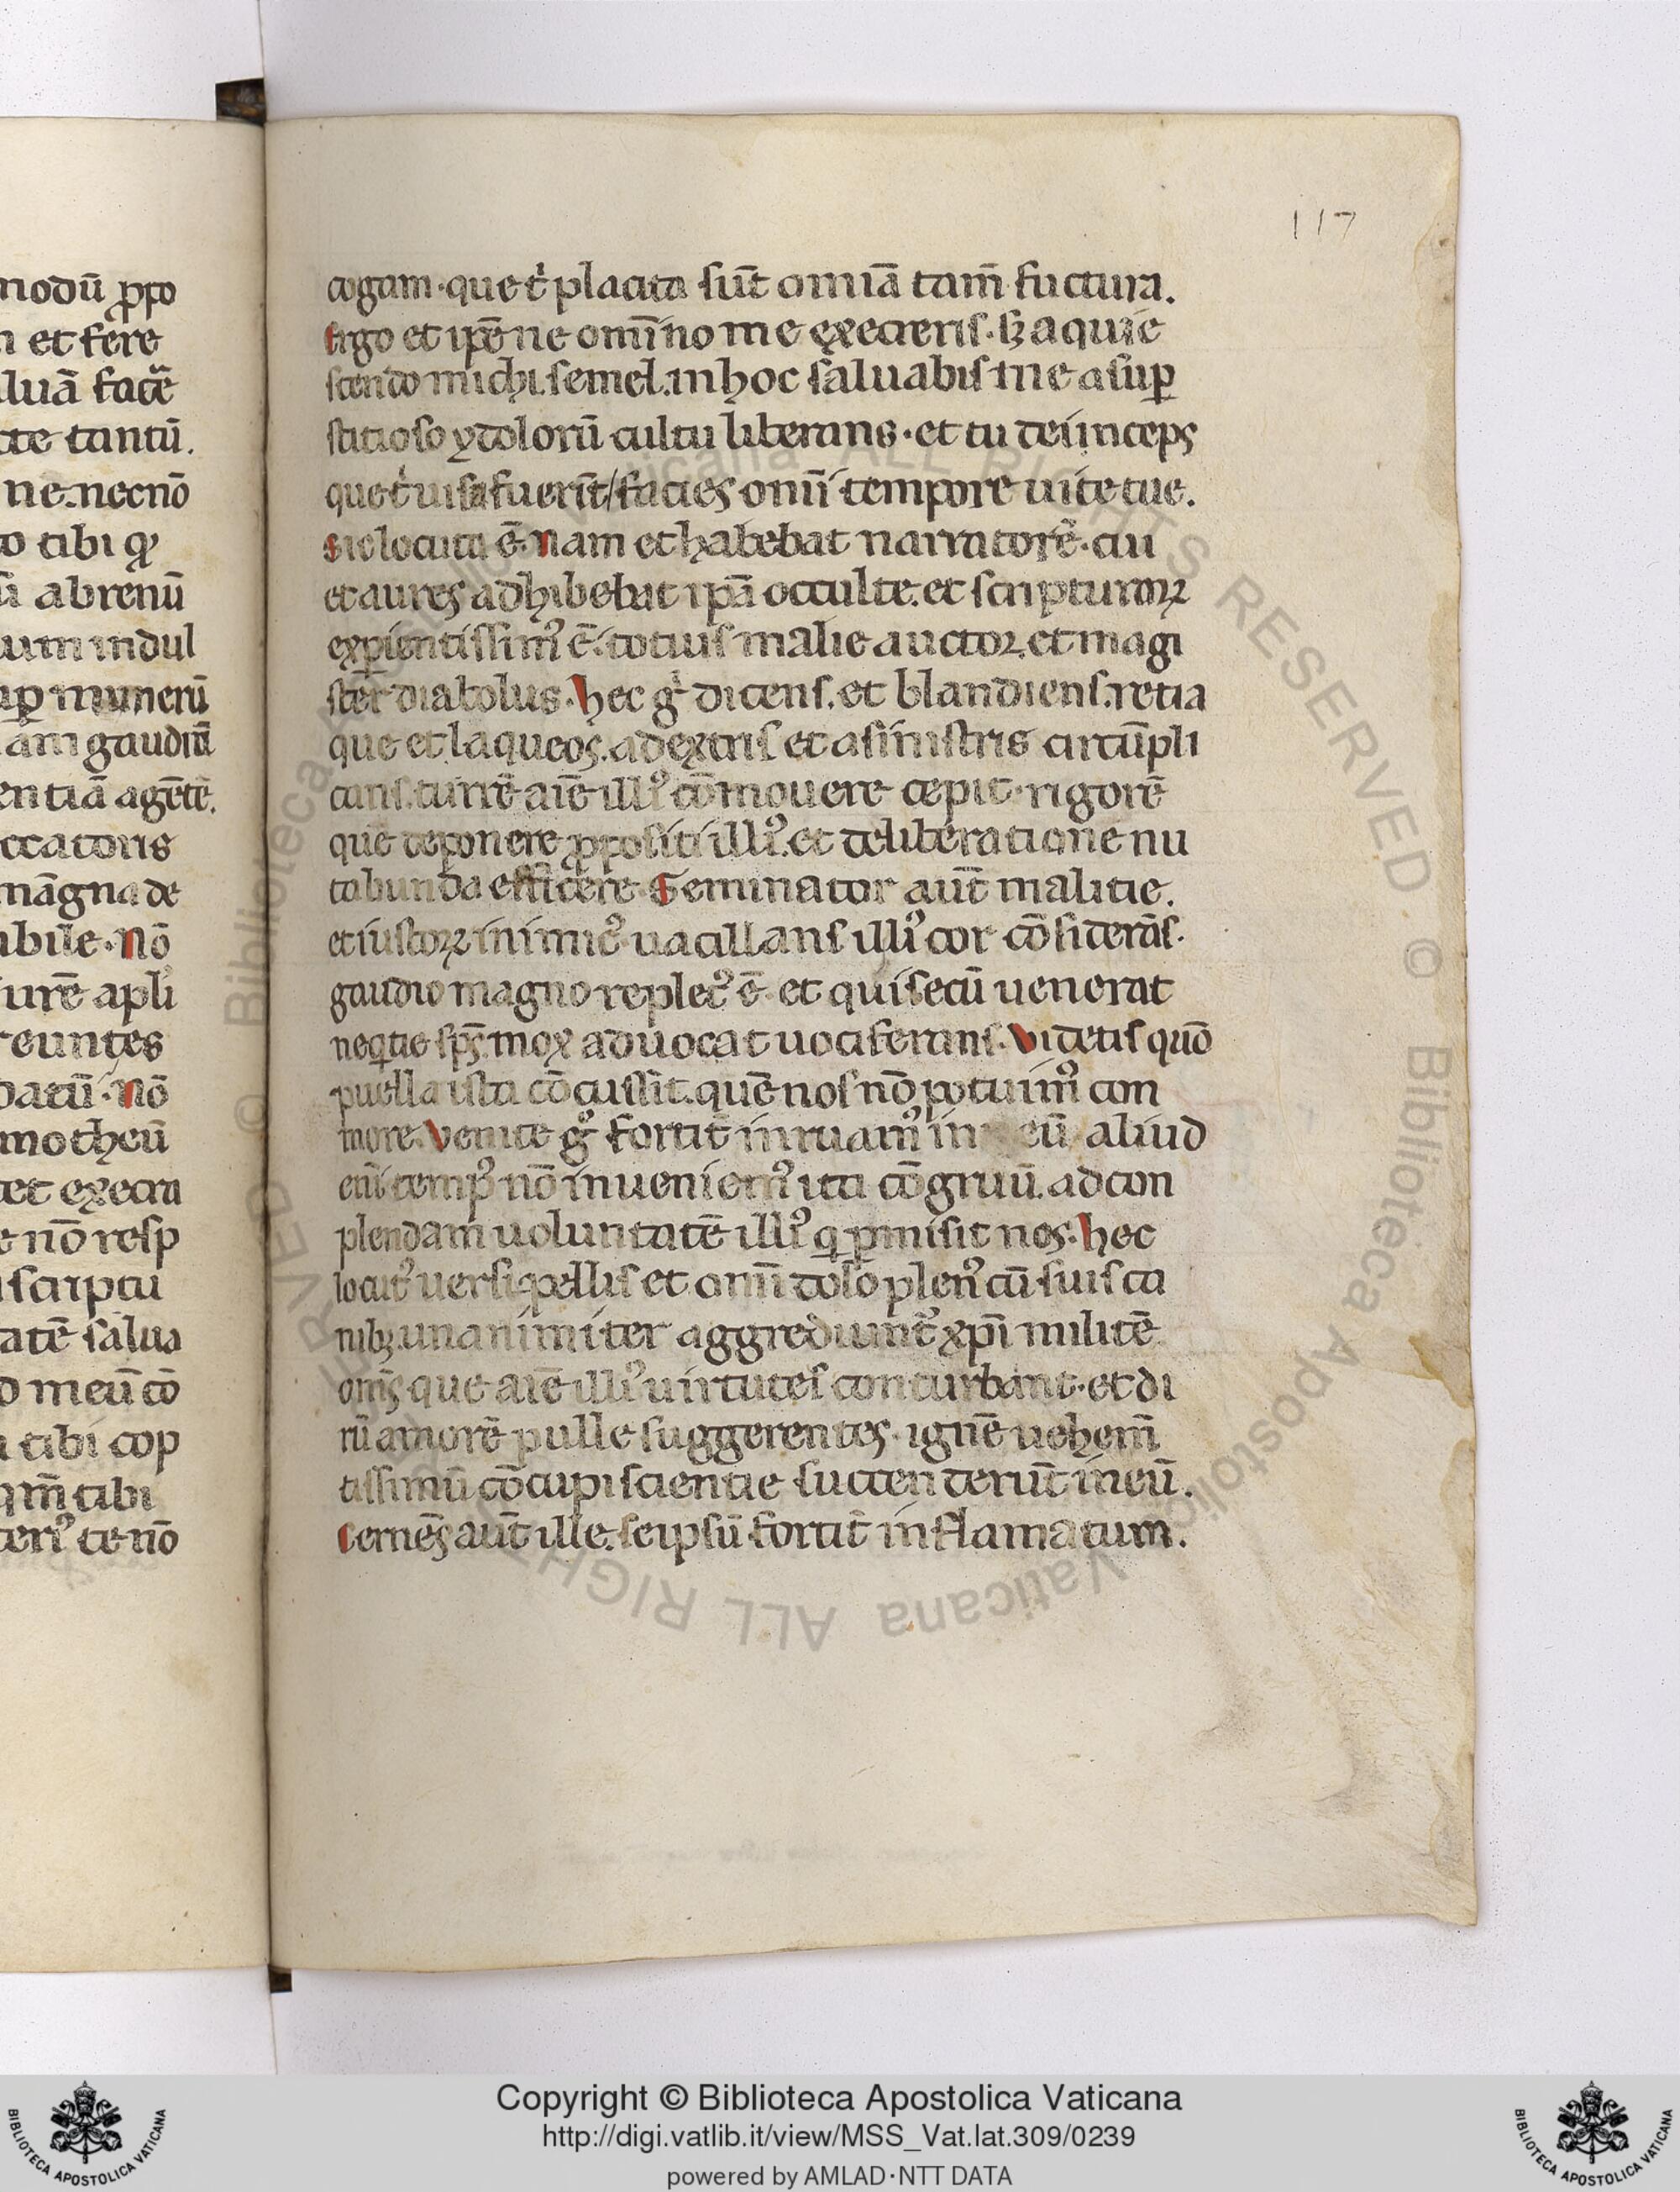 modū ꝓpo
n et fere
luā facē
cte tantū.
ne. necnō
o tibi qͥ
ū abrenū
um indul
uꝑ munerū
am gaudiū
entiā agētē.
ccatoris
māgna de
ibile. Nō
urē apłi
reuntes
datū. Nō
motheū
tet execra
e nō resp
scriptu
tatē salua
d meū cō
tibi cop
qm̄ tibi
terꝰ te nō
117
cogam. que tͥ placita sūt omīa tam̄ factura.
Ergo et ipē ne omīno me exeereris. sꝫ aquie
scendo michi. semel. in hoc saluabis me a suꝑ
stitioso ydolorū cultu liberans. et tu deinceps
que tͥ uisa fuerīt / facies om̄i tempore uite tue.
Sic locuta ē. Nam et habebat narratorē. cui
et aures adhibebat ipā occulte. et scripturarꝝ
exꝑientissimꝰ ē. totius malie auctor. et magi
ster diabolus. Hec gͥ dicens. et blandiens. retia
que et laqueos. a dextris et a sinistris circūpli
cans. turrē aīe illiꝰ cōmouere cepit. rigorē
que deponere ꝓpositi illiꝰ. et deliberatione nu
tabunda efficere. Seminator aut̄ malitie.
et iustorꝝ inimicꝰ. uacillans illiꝰ cor cōsiderās.
gaudio magno repletꝰ ē. et qui secū uenerat
neqͥtie sp̄s. mox aduocat uociferans. Videtis quō
puella ista cōcussit. quē nos nō potuimꝰ con
more. Venite gͦ fortit̄ inruamꝰ in eū. aliud
eni tempꝰ nō inueniemꝰ ita cōgruū. ad con
plendam uoluntatē illiꝰ qͥ ꝑmisit nos. Hec
locutꝰ uersipellis et om̄i dolo plenꝰ cū suis ca
nibꝫ. unanimiter aggrediunt̄ xp̄i militē.
om̄s. que aīe illiꝰ uirtutes conturbant. et di
rū amorē pulle suggerentes. ignē uehem̄
tissimū cōcupiscientie succenderūt in eū.
Cernēs aut̄ ille. seipsū fortit̄ inflamatum.
Copyright © Biblioteca Apostolica Vaticana
http://digi.vatlib.it/view/MSS_Vat.lat.309/0239
powered by AMLAD·NTT DATA
BIBLIOTECA APOSTOLICA VATICANA
BIBLIOTECA APOSTOLICA VATICANA
© Biblioteca Apostolica Vaticana ALL RIGHTS RESERVED